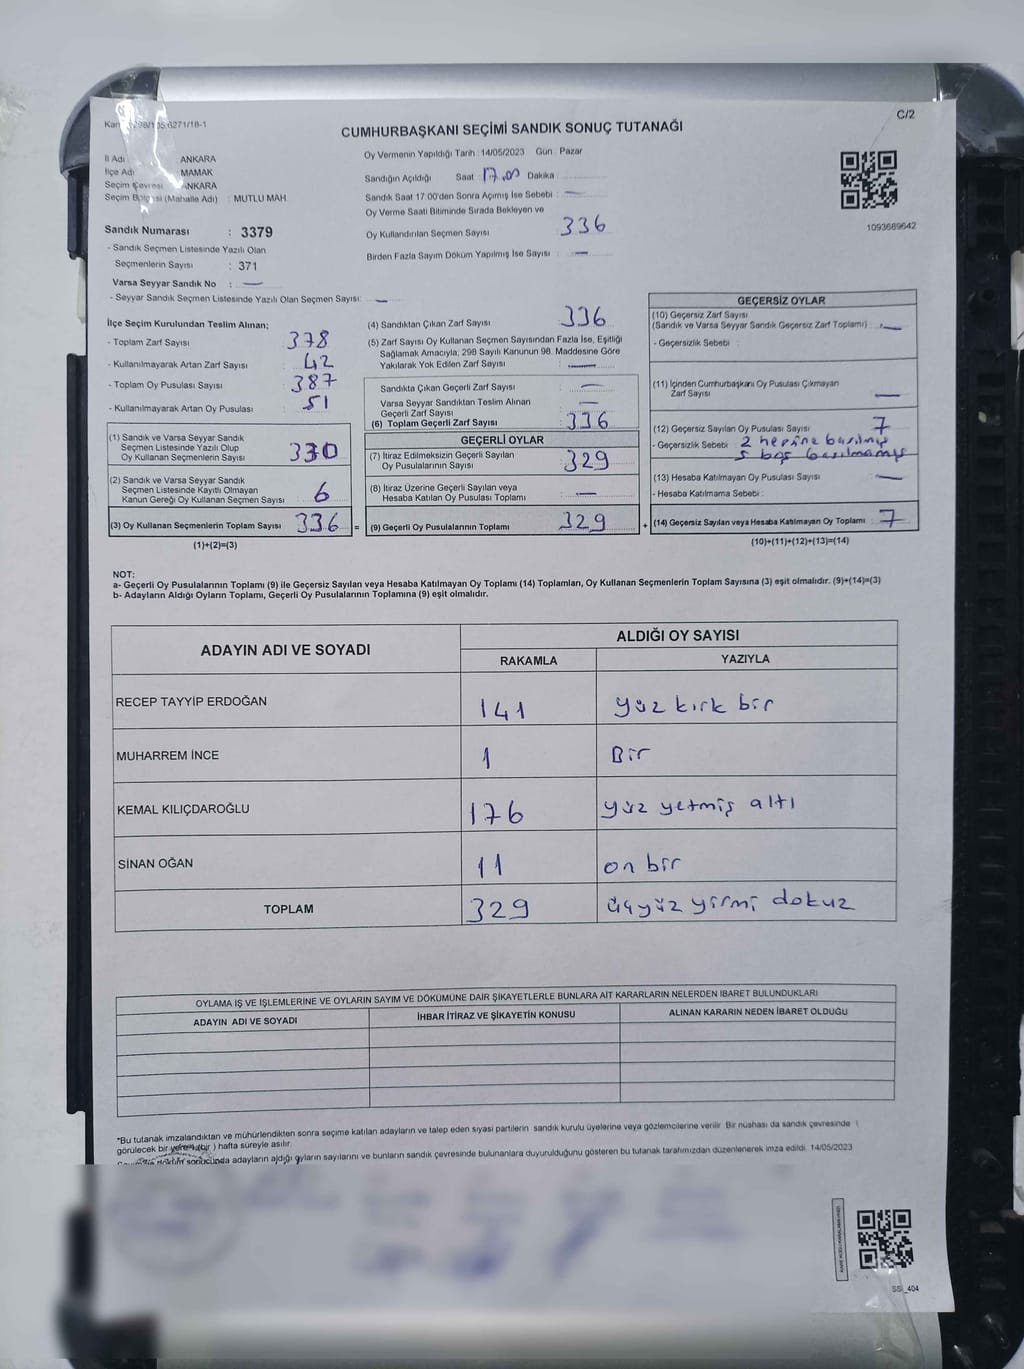 C/2
CUMHURBAŞKANI SEÇİMİ SANDIK SONUÇ TUTANAĞI
İl Adı : ANKARA
İlçe Adı : MAMAK
Seçim Çevresi : ANKARA
Seçim Bölgesi (Mahalle Adı) : MUTLU MAH.
Sandık Numarası : 3379
- Sandık Seçmen Listesinde Yazılı Olan
Seçmenlerin Sayısı : 371
Varsa Seyyar Sandık No : —
- Seyyar Sandık Seçmen Listesinde Yazılı Olan Seçmen Sayısı: —
Oy Vermenin Yapıldığı Tarih : 14/05/2023 Gün : Pazar
Sandığın Açıldığı Saat 17.00 Dakika
Sandık Saat 17.00'den Sonra Açımış İse Sebebi : —
Oy Verme Saati Bitiminde Sırada Bekleyen ve
Oy Kullandırılan Seçmen Sayısı 336
Birden Fazla Sayım Döküm Yapılmış İse Sayısı : —
1093689642
İlçe Seçim Kurulundan Teslim Alınan;
- Toplam Zarf Sayısı 378
- Kullanılmayarak Artan Zarf Sayısı 42
- Toplam Oy Pusulası Sayısı 387
- Kullanılmayarak Artan Oy Pusulası 51
(1) Sandık ve Varsa Seyyar Sandık
Seçmen Listesinde Yazılı Olup
Oy Kullanan Seçmenlerin Sayısı 330
(2) Sandık ve Varsa Seyyar Sandık
Seçmen Listesinde Kayıtlı Olmayan
Kanun Gereği Oy Kullanan Seçmen Sayısı 6
(3) Oy Kullanan Seçmenlerin Toplam Sayısı 336 =
(1)+(2)=(3)
(4) Sandıktan Çıkan Zarf Sayısı 336
(5) Zarf Sayısı Oy Kullanan Seçmen Sayısından Fazla İse, Eşitliği
Sağlamak Amacıyla, 298 Sayılı Kanunun 98. Maddesine Göre
Yakılarak Yok Edilen Zarf Sayısı : —
Sandıkta Çıkan Geçerli Zarf Sayısı : —
Varsa Seyyar Sandıktan Teslim Alınan
Geçerli Zarf Sayısı —
(6) Toplam Geçerli Zarf Sayısı 336
GEÇERLİ OYLAR
(7) İtiraz Edilmeksizin Geçerli Sayılan
Oy Pusulalarının Sayısı 329
(8) İtiraz Üzerine Geçerli Sayılan veya
Hesaba Katılan Oy Pusulası Toplamı : —
(9) Geçerli Oy Pusulalarının Toplamı 329 +
GEÇERSİZ OYLAR
(10) Geçersiz Zarf Sayısı
(Sandık ve Varsa Seyyar Sandık Geçersiz Zarf Toplamı) : —
- Geçersizlik Sebebi :
(11) İçinden Cumhurbaşkanı Oy Pusulası Çıkmayan
Zarf Sayısı —
(12) Geçersiz Sayılan Oy Pusulası Sayısı 7
- Geçersizlik Sebebi : 2 hepine basılmış
5 boş basılmamış
(13) Hesaba Katılmayan Oy Pusulası Sayısı —
- Hesaba Katılmama Sebebi :
(14) Geçersiz Sayılan veya Hesaba Katılmayan Oy Toplamı : 7
(10)+(11)+(12)+(13)=(14)
NOT:
a- Geçerli Oy Pusulalarının Toplamı (9) ile Geçersiz Sayılan veya Hesaba Katılmayan Oy Toplamı (14) Toplamları, Oy Kullanan Seçmenlerin Toplam Sayısına (3) eşit olmalıdır. (9)+(14)=(3)
b- Adayların Aldığı Oyların Toplamı, Geçerli Oy Pusulalarının Toplamına (9) eşit olmalıdır.
ADAYIN ADI VE SOYADI ALDIĞI OY SAYISI
RAKAMLA YAZIYLA
RECEP TAYYİP ERDOĞAN 141 yüz kırk bir
MUHARREM İNCE 1 Bir
KEMAL KILIÇDAROĞLU 176 yüz yetmiş altı
SİNAN OĞAN 11 on bir
TOPLAM 329 üçyüz yirmi dokuz
OYLAMA İŞ VE İŞLEMLERİNE VE OYLARIN SAYIM VE DÖKÜMÜNE DAİR ŞİKAYETLERLE BUNLARA AİT KARARLARIN NELERDEN İBARET BULUNDUKLARI
ADAYIN ADI VE SOYADI İHBAR İTİRAZ VE ŞİKAYETİN KONUSU ALINAN KARARIN NEDEN İBARET OLDUĞU
*Bu tutanak imzalandıktan ve mühürlendikten sonra seçime katılan adayların ve talep eden siyasi partilerin sandık kurulu üyelerine veya gözlemcilerine verilir. Bir nüshası da sandık çevresinde
görülecek bir yere (bir) hafta süreyle asılır.
sonucunda adayların aldığı oyların sayılarını ve bunların sandık çevresinde bulunanlara duyurulduğunu gösteren bu tutanak tarafımızdan düzenlenerek imza edildi. 14/05/2023